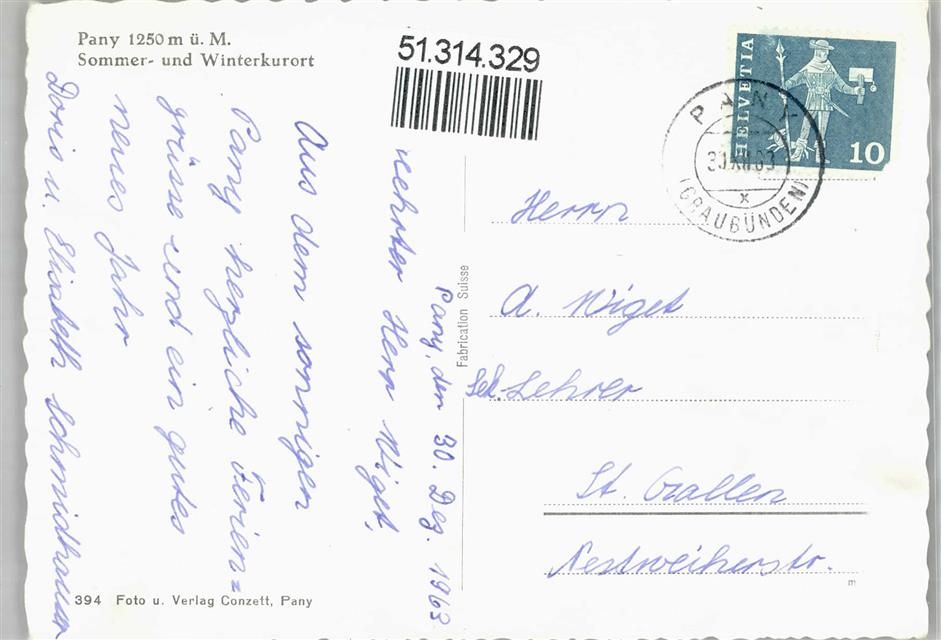 Pany 1250 m ü. M.
Sommer- und Winterkurort
51.314.329
HELVETIA
10
PANY
30.XII.63
x
(GRAUBÜNDEN)
Pany, den 30. Dez. 1963
Herr Wiget,
Aus dem sonnigen
Pany herzliche Ferien=
grüsse und ein gutes
neues Jahr
Doris u. Elisabeth Schmidhauser
Fabrication Suisse
Herrn
A. Wiget
Sek. Lehrer
St. Gallen
Nestweiherstr.
m
394 Foto u. Verlag Conzett, Pany